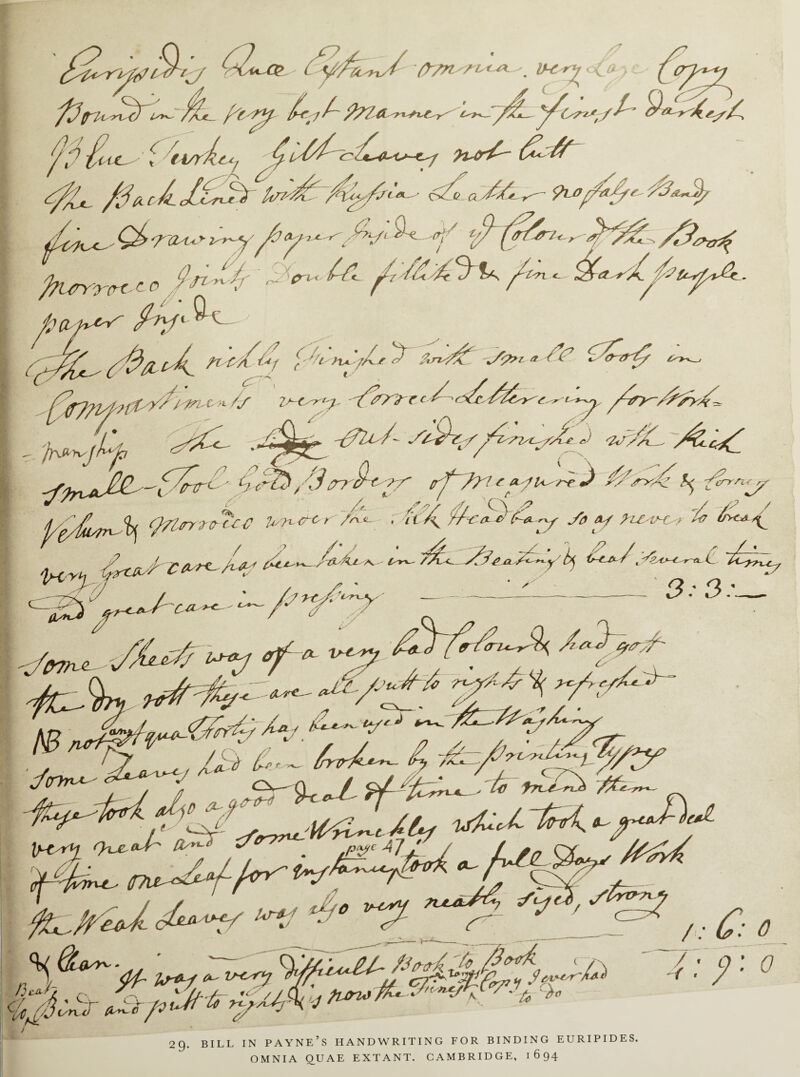 Euripidis Quæ Extant omnia. very Large Copy
Bound in the very best Manner in the finest darkest
Blue Turkey Gilt Leaves not Cutt
The Back Lined with Russia Leather no false Bands
fine Drawing paper Inside of ye Colour of the Book
Morrocco Joints Double fillited & fine Dark purple
paper Inside
The Back richly Finished with small Tools in
Compartiments very Correct Lettering for Work=
-manship The Out-sides finished with Rich
small-Tool Gold Borders of measured Work & Corners
Velum & Morrocco under the Silk Headbans so as never to break
very Great care has been taken in the Beating & beat several times
and great care in pressing 3:3:—
Some Sheets was of a very bad Colour & had gott
the dry rott these are all putt to rights & refreshed
NB not any Aqua Fortis has been used in the Washing
Some Leaves had been broken by the Printing Types
these took also a good deal of time to mend them
very neat and some Wrinckles which took a great deal
of time one Leaf for instance, page 47 took a full Days Work
The Weak Leaves was also very neatly sized, strong
& Clean. 1:6:0
It was a very difficult Book to Book
Beat, to Bind and putt to rights & is now the Finest Copy I ever had to do
4:9:0
29. BILL IN PAYNE'S HANDWRITING FOR BINDING EURIPIDES.
OMNIA QUAE EXTANT. CAMBRIDGE, 1694